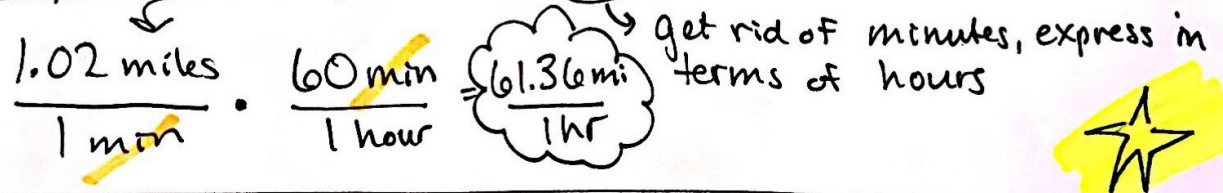 1.02 miles / 1 min · 60 min / 1 hour ⇒ 61.36 mi / 1 hr
get rid of minutes, express in
terms of hours